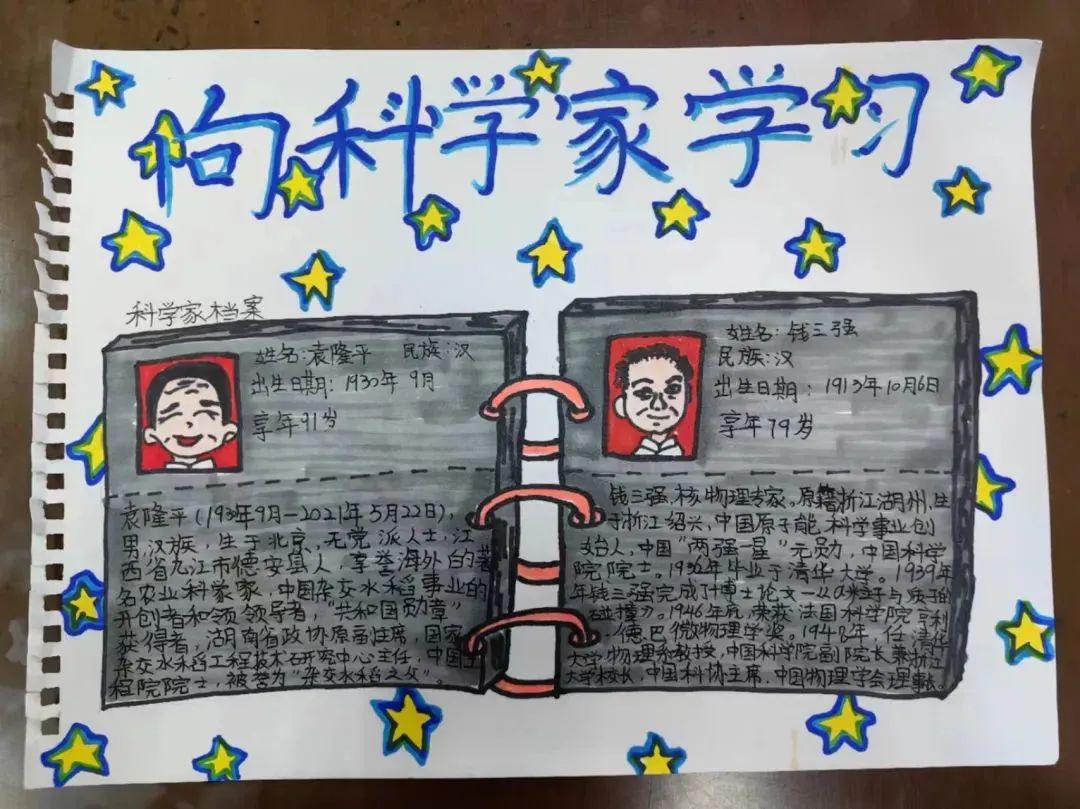 向科学家学习
科学家档案
姓名:袁隆平 民族:汉
出生日期:1930年9月
享年91岁
袁隆平(1930年9月-2021年5月22日),
男,汉族,生于北京,无党派人士,江
西省九江市德安县人,享誉海外的著
名农业科学家家,中国杂交水稻事业的
开创者和领领导者,“共和国勋章”
获得者,湖南省政协原副主席,国家
杂交水稻工程技术研究中心主任,中国工
程院院士,被誉为“杂交水稻之父”。
姓名:钱三强
民族:汉
出生日期:1913年10月6日
享年79岁
钱三强,核物理专家。原籍浙江湖州,生
于浙江绍兴,中国原子能科学事业创
始人,中国“两强一星”元勋,中国科学
院院士。1936年毕业于清华大学。1939年
年钱三强完成了博士论文—《α粒子与质子的
碰撞》。1946年底,荣获法国科学院亨利
·德巴微物理学奖。1948年,任清华
大学物理系教授,中国科学院副院长兼浙江
大学校长,中国科协主席,中国物理学会理事长。